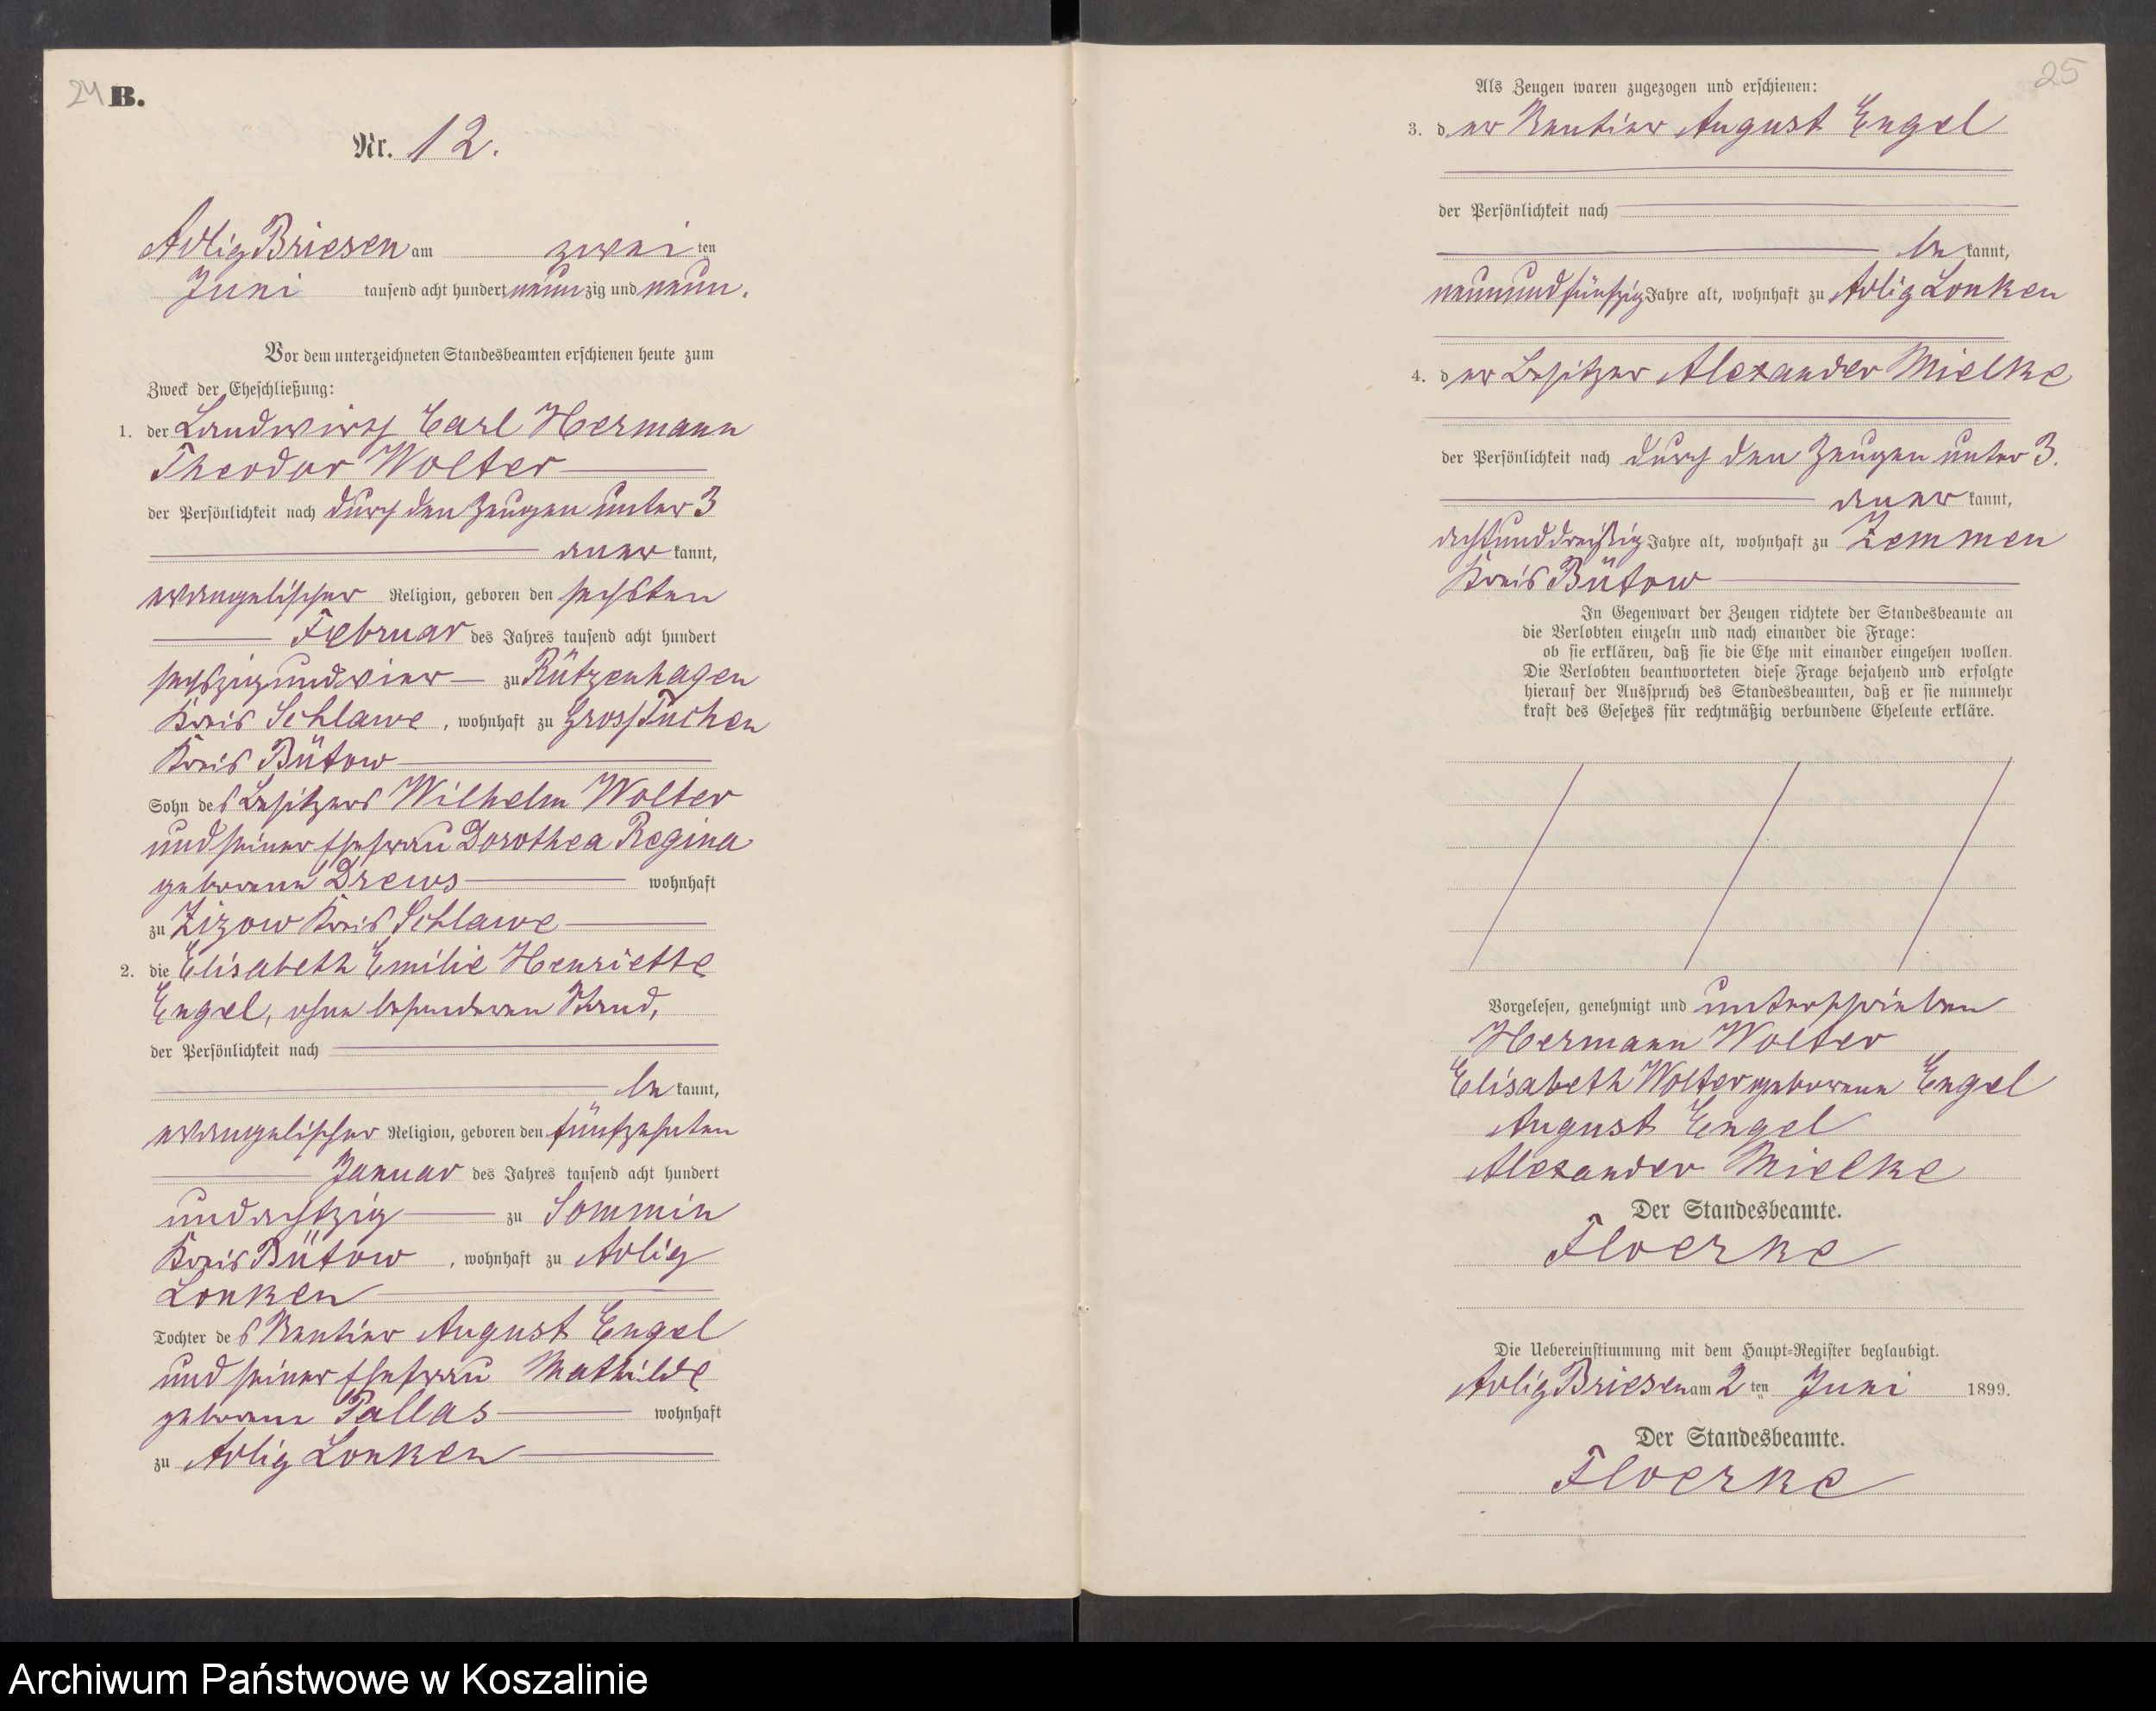 24 B.
Nr. 12.
Adlig Briesen am zwei ten
Juni tausend acht hundert neunzig und neun.
Vor dem unterzeichneten Standesbeamten erschienen heute zum
Zweck der Eheschließung:
1. der Landwirth Carl Hermann
Theodor Wolter
der Persönlichkeit nach durch den Zeugen unter 3
anerkannt,
evangelischer Religion, geboren den sechsten
Februar des Jahres tausend acht hundert
sechszigundvier zu Rützenhagen
Kreis Schlawe, wohnhaft zu Gross Tuchen
Kreis Bütow
Sohn des Besitzers Wilhelm Wolter
und seiner Ehefrau Dorothea Regina
geborene Drews wohnhaft
zu Zizow Kreis Schlawe
2. die Elisabeth Emilie Henriette
Engel, ohne besonderen Stand,
der Persönlichkeit nach
bekannt,
evangelischer Religion, geboren den fünfzehnten
Januar des Jahres tausend acht hundert
undachtzig zu Sommin
Kreis Bütow, wohnhaft zu Adlig
Lonken
Tochter des Rentier August Engel
und seiner Ehefrau Mathilde
geborene Pallas wohnhaft
zu Adlig Lonken
25
Als Zeugen waren zugezogen und erschienen:
3. der Rentier August Engel
der Persönlichkeit nach
bekannt,
neunundfünfzig Jahre alt, wohnhaft zu Adlig Lonken
4. der Besitzer Alexander Mielke
der Persönlichkeit nach durch den Zeugen unter 3.
anerkannt,
achtunddreißig Jahre alt, wohnhaft zu Zemmen
Kreis Bütow
In Gegenwart der Zeugen richtete der Standesbeamte an
die Verlobten einzeln und nach einander die Frage:
ob sie erklären, daß sie die Ehe mit einander eingehen wollen.
Die Verlobten beantworteten diese Frage bejahend und erfolgte
hierauf der Ausspruch des Standesbeamten, daß er sie nunmehr
kraft des Gesetzes für rechtmäßig verbundene Eheleute erkläre.
Vorgelesen, genehmigt und unterschrieben
Hermann Wolter
Elisabeth Wolter geborene Engel
August Engel
Alexander Mielke
Der Standesbeamte.
Floerke
Die Uebereinstimmung mit dem Haupt-Register beglaubigt.
Adlig Briesen am 2 ten Juni 1899.
Der Standesbeamte.
Floerke
Archiwum Państwowe w Koszalinie